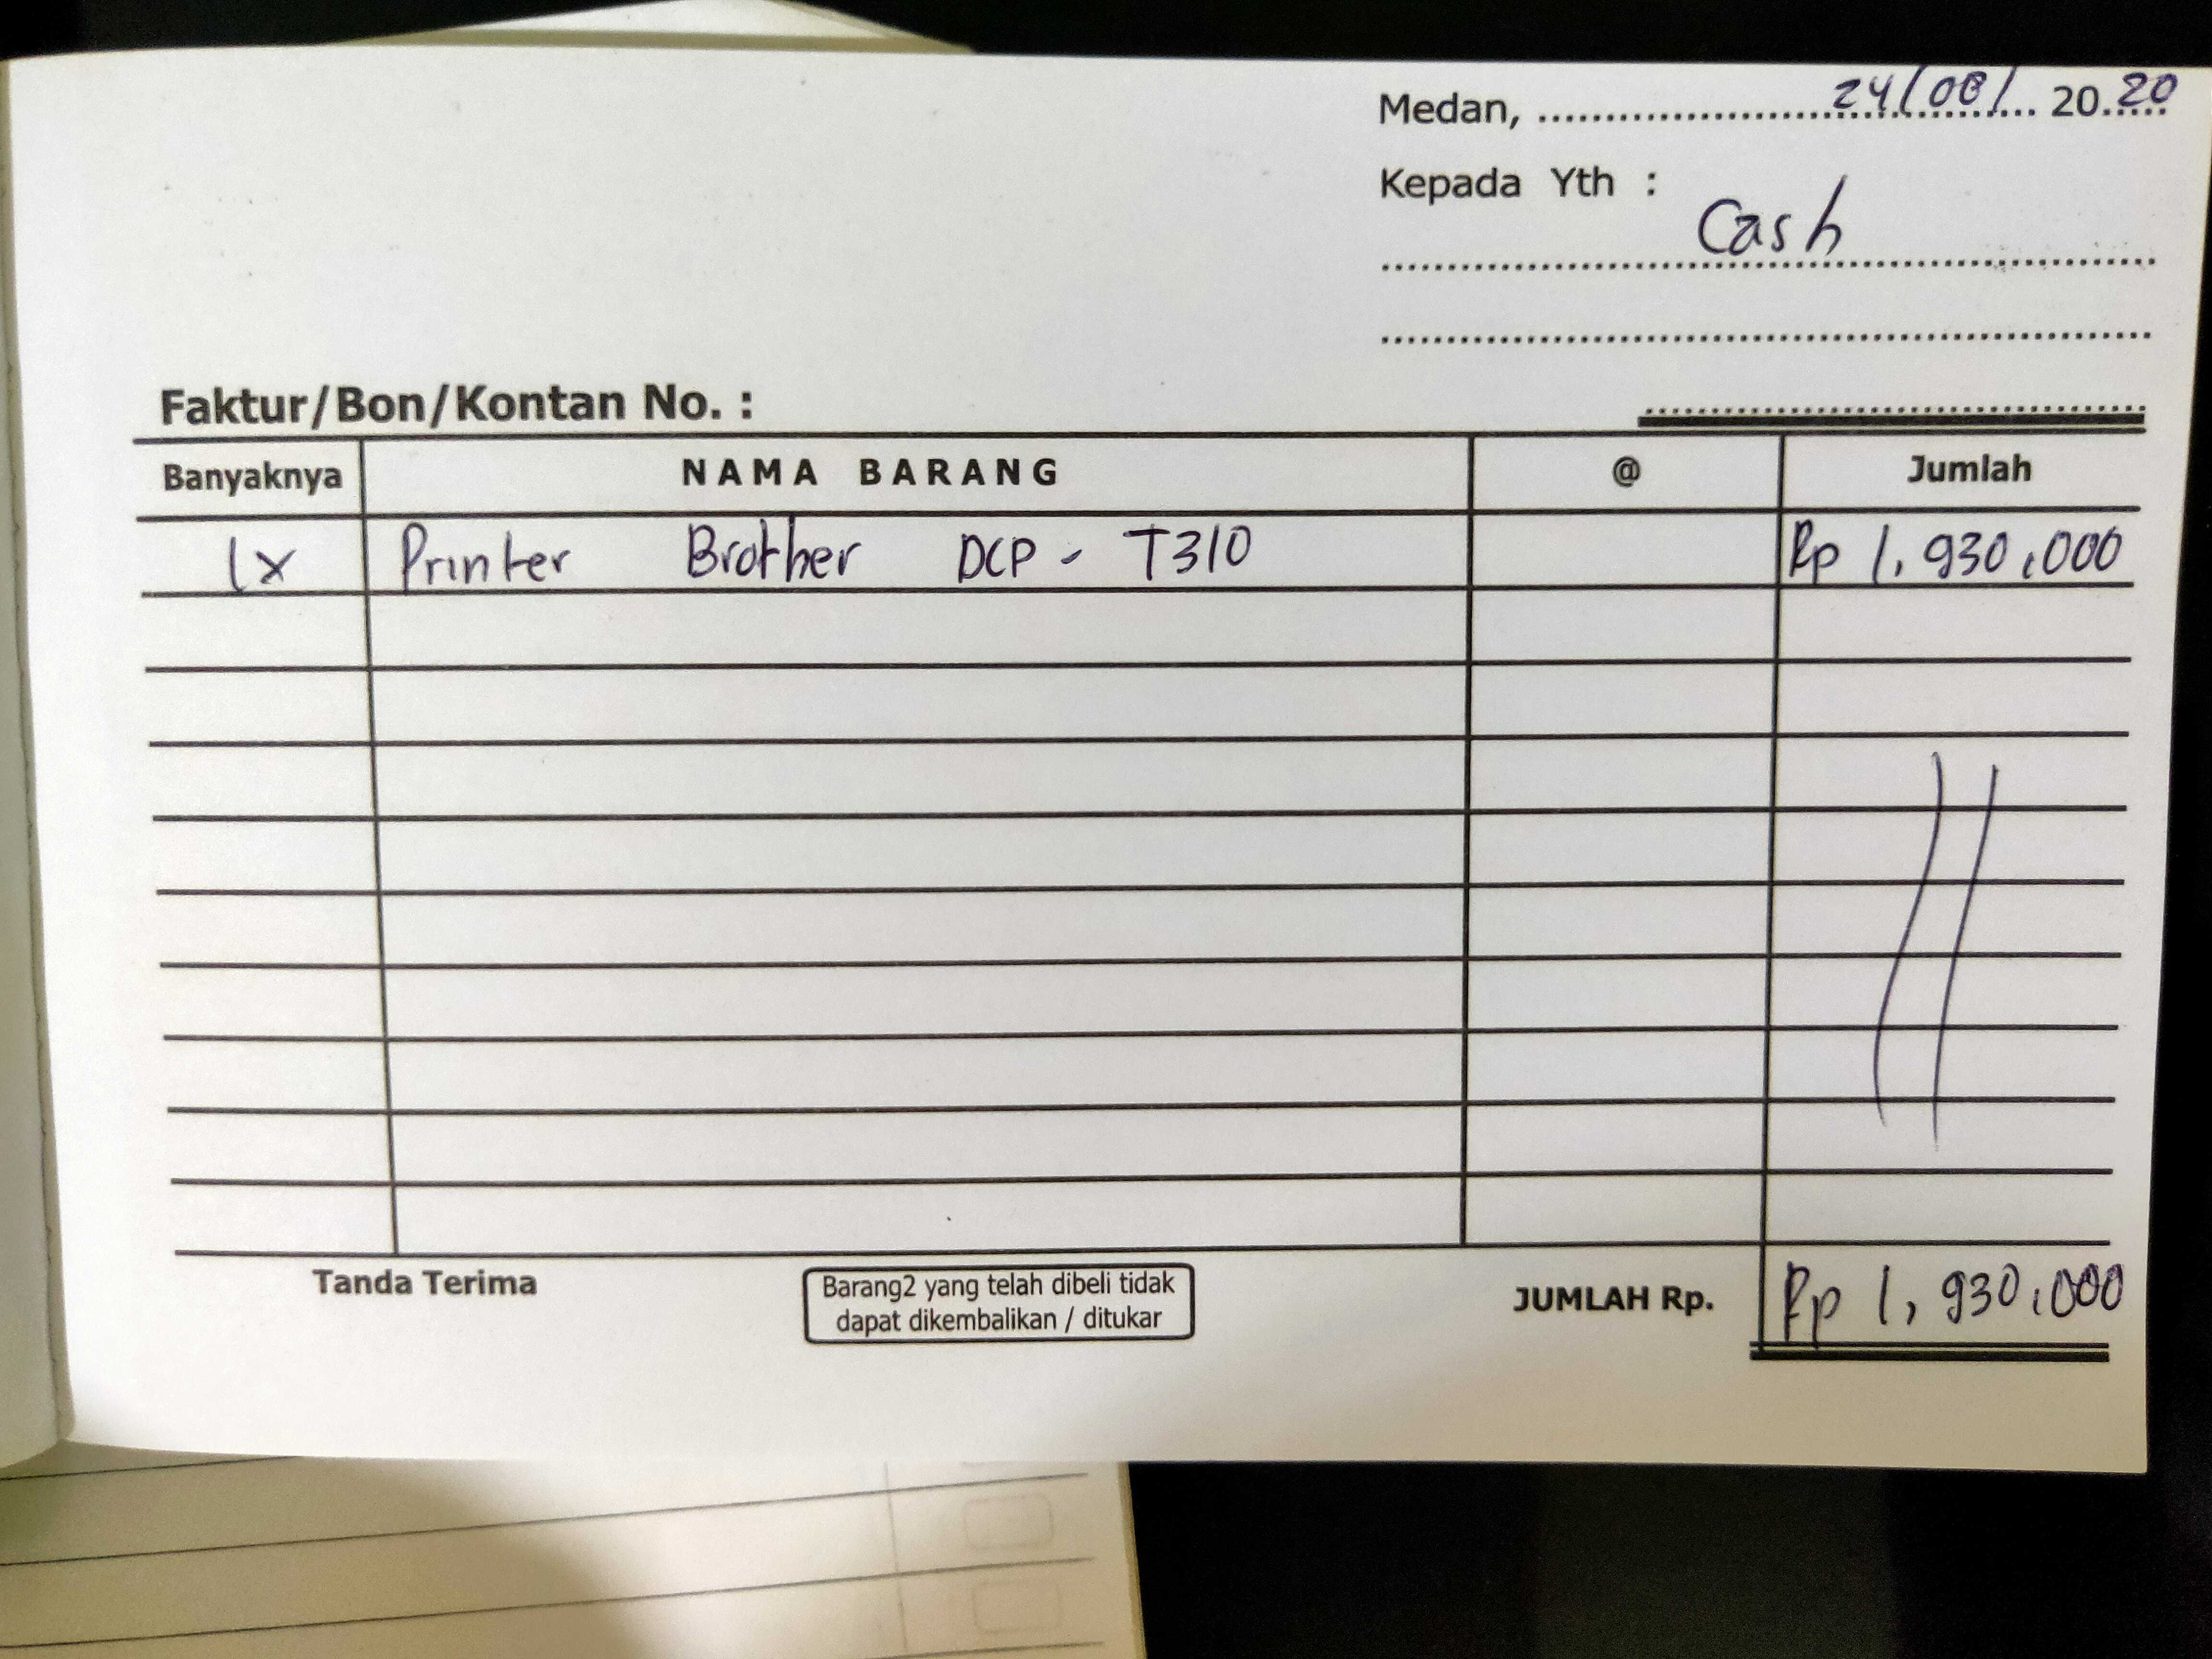 Medan, ........................... 24/08/ ... 20.20
Kepada Yth :
Cash
Faktur/Bon/Kontan No. :
Banyaknya NAMA BARANG @ Jumlah
1x Printer Brother DCP - T310 Rp 1,930,000
Tanda Terima
Barang2 yang telah dibeli tidak
dapat dikembalikan / ditukar
JUMLAH Rp. Rp 1,930,000